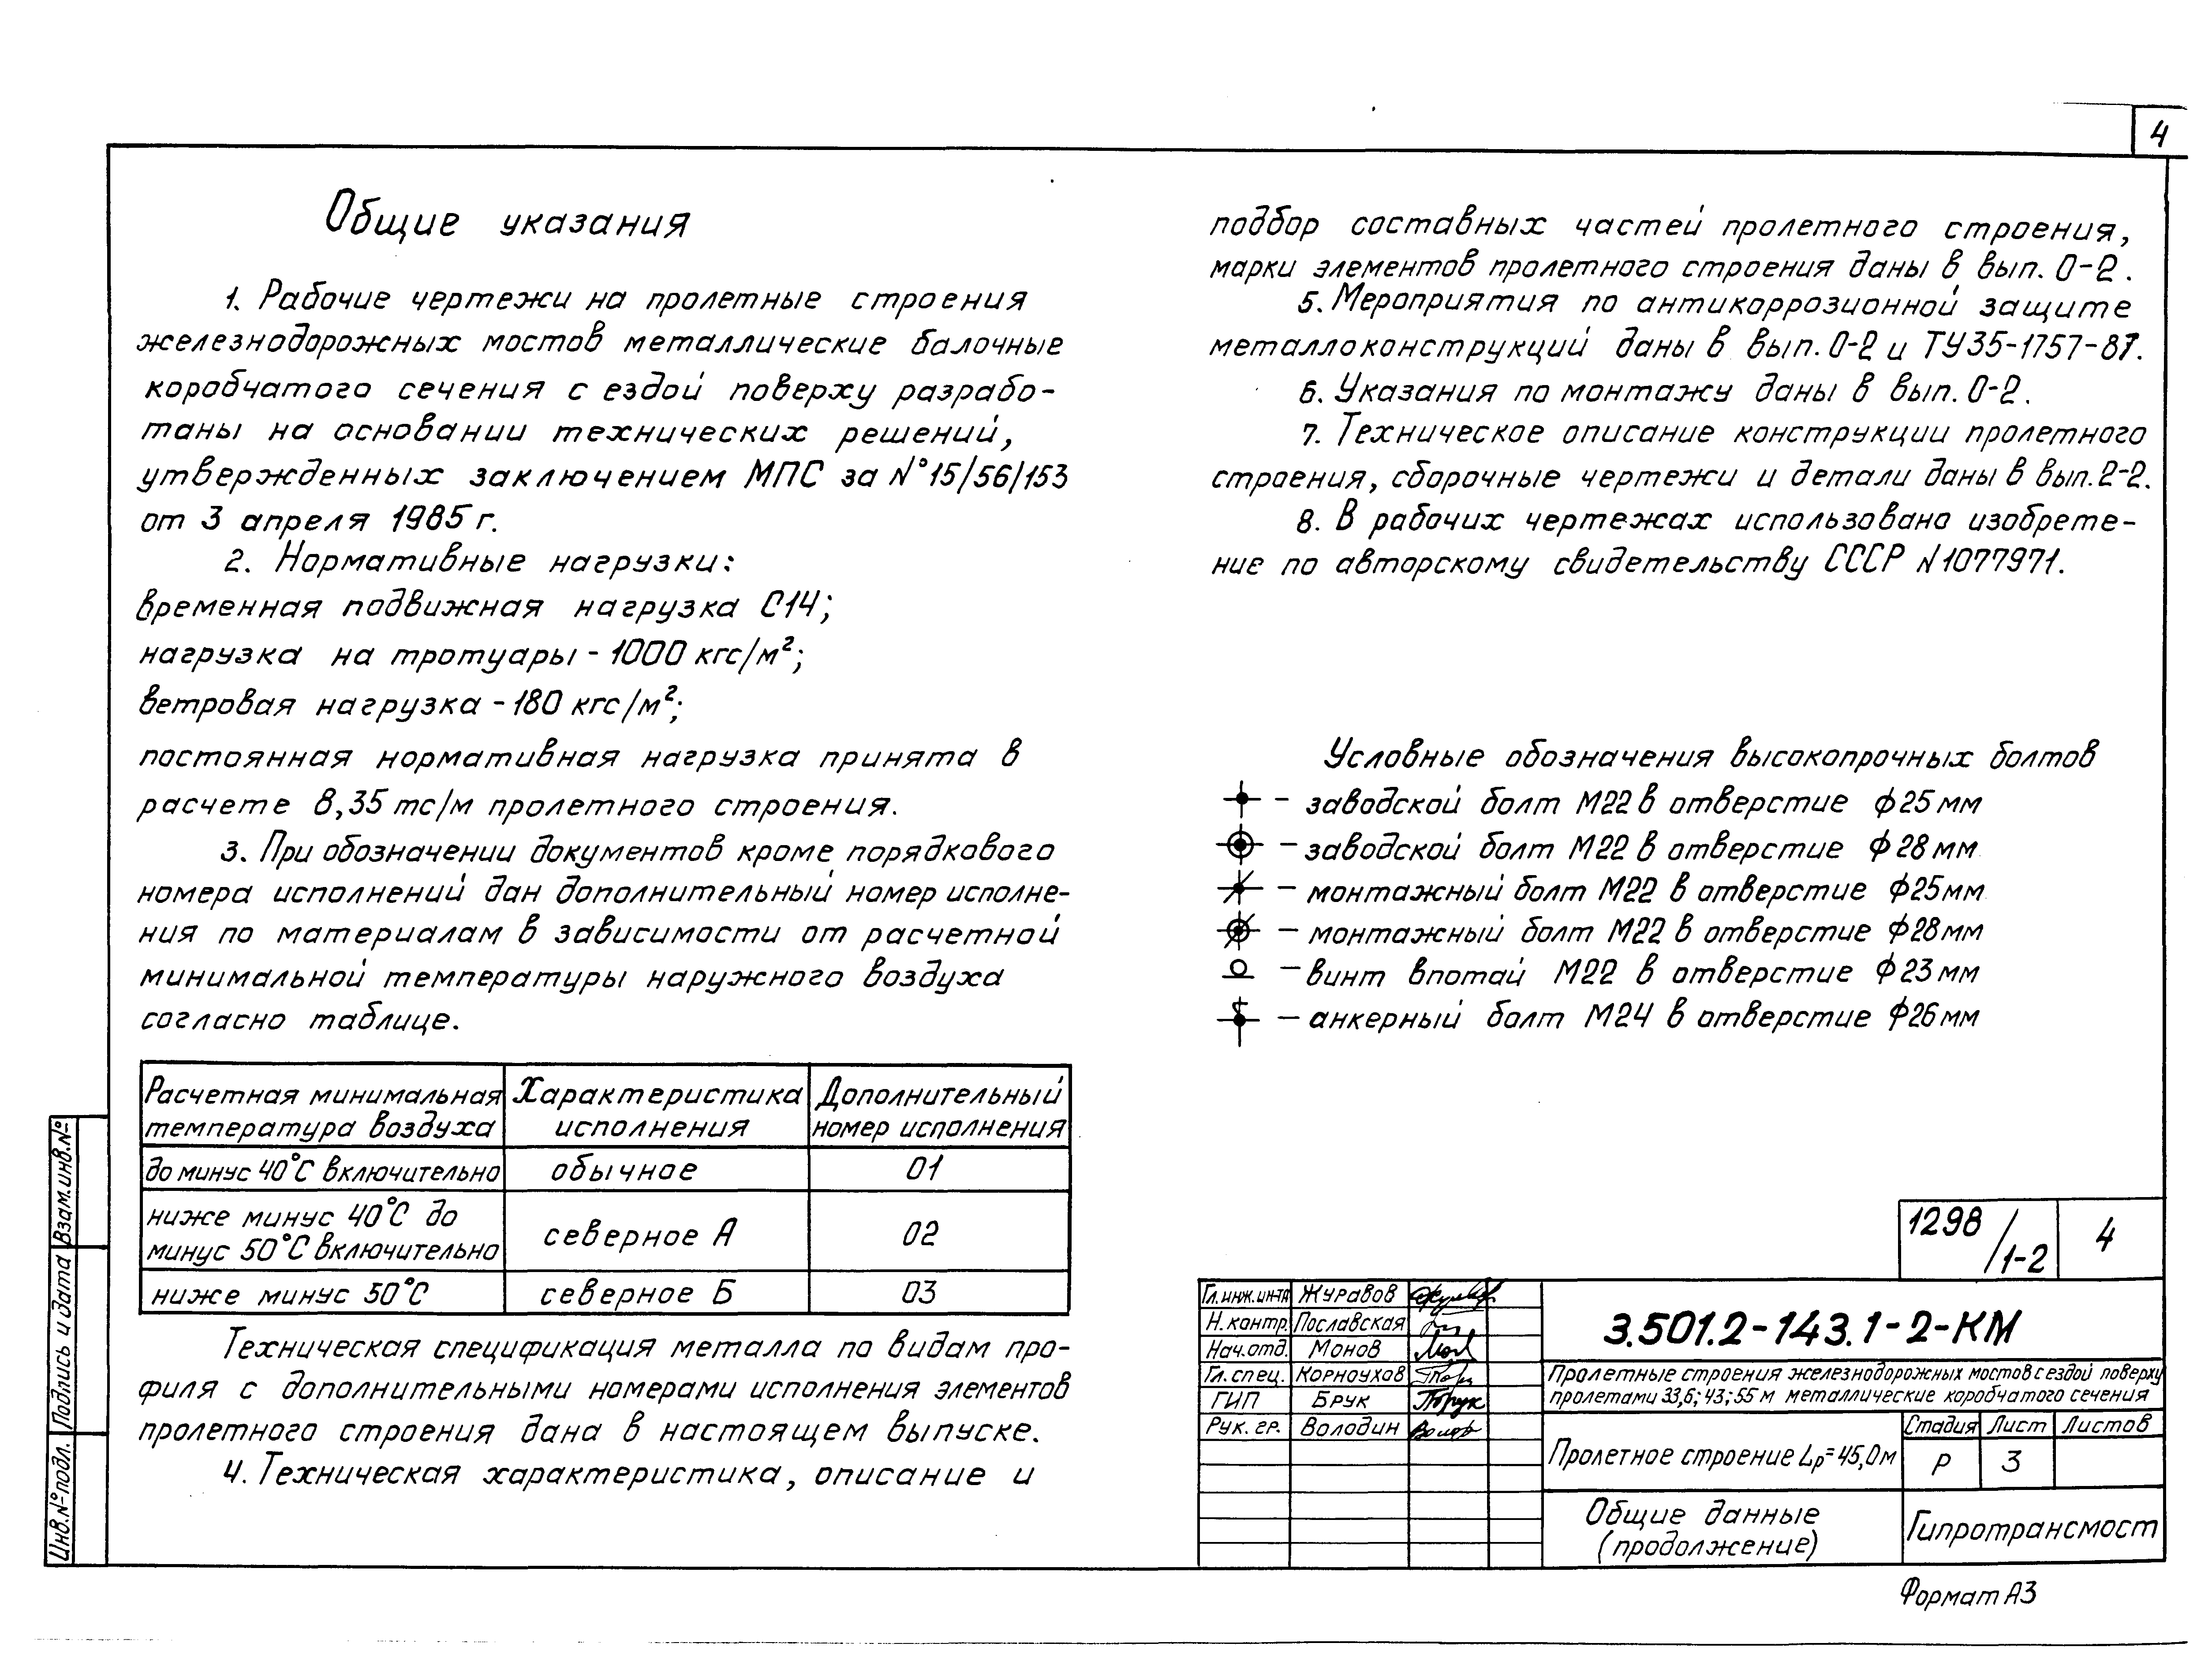 4
Общие указания
1. Рабочие чертежи на пролетные строения
железнодорожных мостов металлические балочные
коробчатого сечения с ездой поверху разрабо-
таны на основании технических решений,
утвержденных заключением МПС за №15/56/153
от 3 апреля 1985 г.
2. Нормативные нагрузки:
временная подвижная нагрузка С14;
нагрузка на тротуары - 1000 кгс/м²;
ветровая нагрузка - 180 кгс/м²;
постоянная нормативная нагрузка принята в
расчете 8,35 тс/м пролетного строения.
3. При обозначении документов кроме порядкового
номера исполнений дан дополнительный номер исполне-
ния по материалам в зависимости от расчетной
минимальной температуры наружного воздуха
согласно таблице.
Расчетная минимальная температура воздуха
Характеристика исполнения
Дополнительный номер исполнения
до минус 40°С включительно обычное 01
ниже минус 40°С до
минус 50°С включительно северное А 02
ниже минус 50°С северное Б 03
Техническая спецификация металла по видам про-
филя с дополнительными номерами исполнения элементов
пролетного строения дана в настоящем выпуске.
4. Техническая характеристика, описание и
подбор составных частей пролетного строения,
марки элементов пролетного строения даны в вып. 0-2.
5. Мероприятия по антикоррозионной защите
металлоконструкций даны в вып. 0-2 и ТУ35-1757-87.
6. Указания по монтажу даны в вып. 0-2.
7. Техническое описание конструкции пролетного
строения, сборочные чертежи и детали даны в вып. 2-2.
8. В рабочих чертежах использовано изобрете-
ние по авторскому свидетельству СССР N1077971.
Условные обозначения высокопрочных болтов
- заводской болт М22 в отверстие ф25мм
- заводской болт М22 в отверстие ф28мм
- монтажный болт М22 в отверстие ф25мм
- монтажный болт М22 в отверстие ф28мм
- винт впотай М22 в отверстие ф23мм
- анкерный болт М24 в отверстие ф26мм
1298/1-2 4
Гл.инж.ин-та Журавов
Н. контр. Пославская
Нач.отд. Монов
Гл.спец. Корноухов
ГИП Брук
Рук. гр. Володин
3.501.2-143.1-2-КМ
Пролетные строения железнодорожных мостов с ездой поверху
пролетами 33,6; 43; 55 м металлические коробчатого сечения
Пролетное строение Lр=45,0м
Стадия Лист Листов
Р 3
Общие данные
(продолжение)
Гипротрансмост
Формат А3
Инв.№подл. Подпись и дата Взам.инв.№